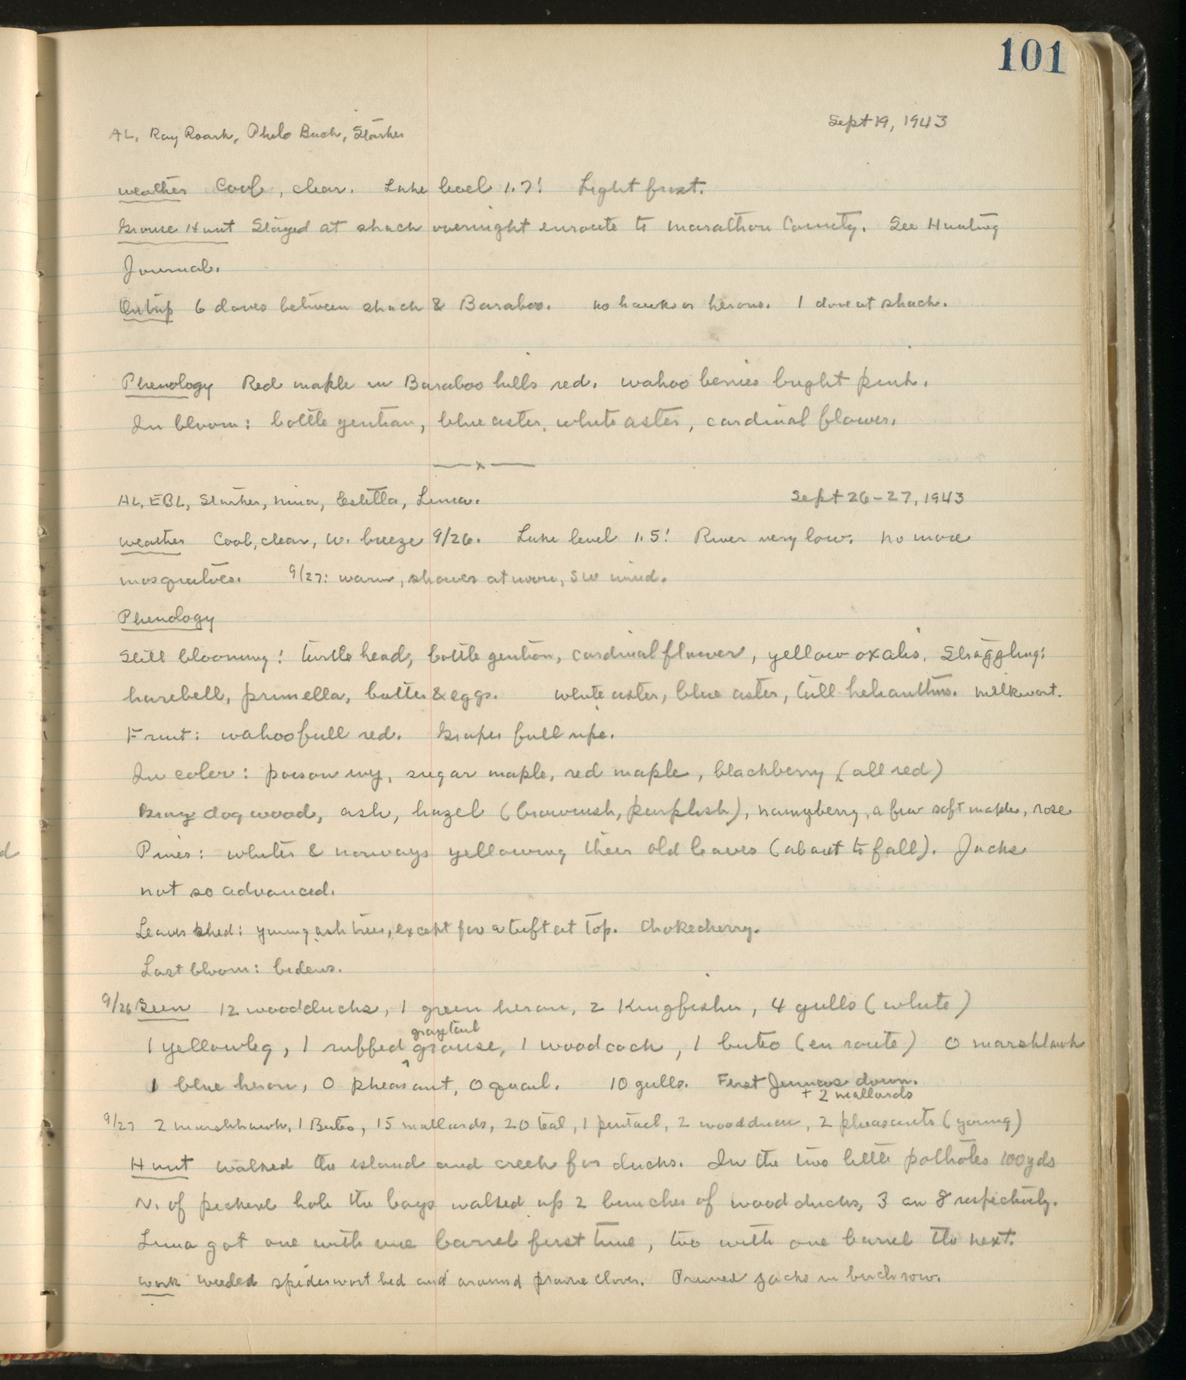 101
AL, Ray Roark, Philo Buck, Starker
Sept 19, 1943
Weather Cool, clear. Lake level 1.7! Light frost.
Grouse Hunt Stayed at shack overnight enroute to Marathon County. See Hunting
Journal.
On trip 6 doves between shack & Baraboo. No hawk or herons. 1 dove at shack.
Phenology Red maple in Baraboo hills red. Wahoo berries bright pink.
In bloom: bottle gentian, blue aster, white aster, cardinal flower.
—x—
AL, EBL, Starker, Nina, Estella, Luna.
Sept 26-27, 1943
Weather Cool, clear, W. breeze 9/26. Lake level 1.5! River very low. No more
mosquitoes. 9/27: warm, shower at noon, SW wind.
Phenology
Still blooming: turtle head, bottle gentian, cardinal flower, yellow oxalis. Straggling:
harebell, prunella, butter & eggs. white aster, blue aster, tall helianthus. milkwort.
Fruit: wahoo full red. Grapes full ripe.
In color: poison ivy, sugar maple, red maple, blackberry (all red)
Gray dogwood, ash, hazel (brownish, purplish), nannyberry, a few soft maples, rose
Pines: whites & norways yellowing their old leaves (about to fall). Jacks
not so advanced.
Leaves shed: young ash trees, except for a tuft at top. Chokecherry.
Last bloom: bidens.
9/26 Seen 12 woodducks, 1 green heron, 2 Kingfisher, 4 gulls (white)
gray tail
1 yellowleg, 1 ruffed grouse, 1 woodcock, 1 buteo (en route) 0 marshhawk
1 blue heron, 0 pheasant, 0 quail. 10 gulls. First Juncos down.
+ 2 mallards
9/27 2 marshhawk, 1 Buteo, 15 mallards, 20 teal, 1 pintail, 2 woodduck, 2 pheasants (young)
Hunt Walked the island and creek for ducks. In the two little potholes 100 yds
N. of pickerel hole the boys walked up 2 bunches of wood ducks, 3 an 8 respectively.
Luna got one with one barrel first time, two with one barrel the next.
Work Weeded spiderwort bed and around prairie clover. Pruned jacks in birch row.